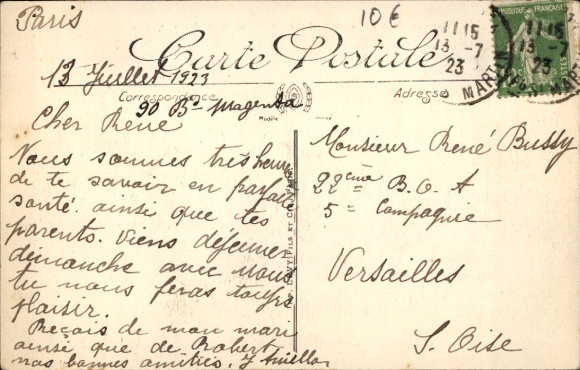 Paris
10€
RÉPUBLIQUE FRANÇAISE
11 15
13 - 7
23
11 15
13 - 7
23
Carte Postale
13 Juillet 1923
Correspondance
Adresse
90 Bd Magenta
Cher René
Nous sommes très heureux
de te savoir en parfaite
santé ainsi que tes
parents. Viens déjeuner
dimanche avec nous
tu nous feras toujrs
plaisir.
Reçois de mon mari
ainsi que de Robert
nos bonnes amitiés.
LEVY FILS ET Cie PARIS
Monsieur René Bussy
22ème B. O. A
5e Compagnie
Versailles
S. Oise